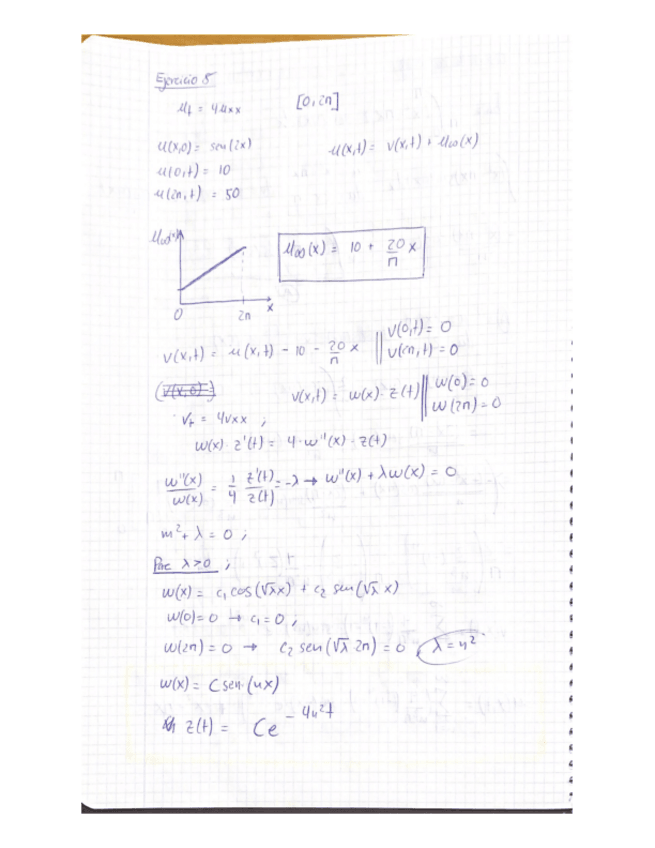 Ejercicio 5
u_t = 4u_xx [0,2π]
u(x,0) = sen(2x) u(x,t) = v(x,t) + u∞(x)
u(0,t) = 10
u(2π,t) = 50
u∞(x)
u∞(x) = 10 + 20/π x
0 2π x
v(x,t) = u(x,t) - 10 - 20/π x || v(0,t) = 0
v(2π,t) = 0
(v(x,0) =)
v(x,t) = w(x)·z(t) || w(0) = 0
w(2π) = 0
· v_t = 4v_xx ;
w(x)·z'(t) = 4·w''(x)·z(t)
w''(x)/w(x) = 1/4 z'(t)/z(t) = -λ → w''(x) + λw(x) = 0
m² + λ = 0 ;
Para λ>0 ;
w(x) = c₁ cos(√λx) + c₂ sen(√λ x)
w(0) = 0 → c₁ = 0 ;
w(2π) = 0 → c₂ sen(√λ 2π) = 0 , λ = n²
w(x) = C sen·(nx)
z(t) = Ce^-4n²t